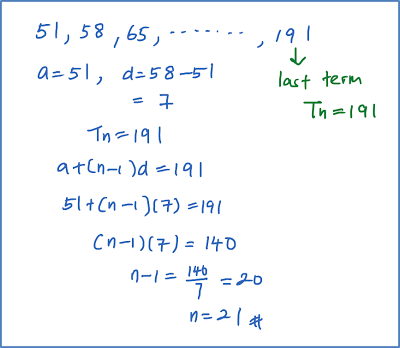 51, 58, 65, ·········, 191
a=51, d=58-51
last term
= 7
Tn=191
Tn=191
a+(n-1)d=191
51+(n-1)(7)=191
(n-1)(7)=140
n-1=140/7=20
n=21 #